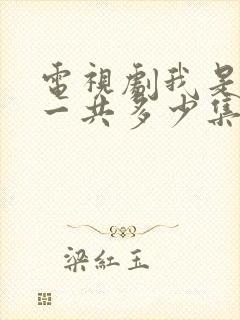 電視劇我是
一共多少集
梁紅玉